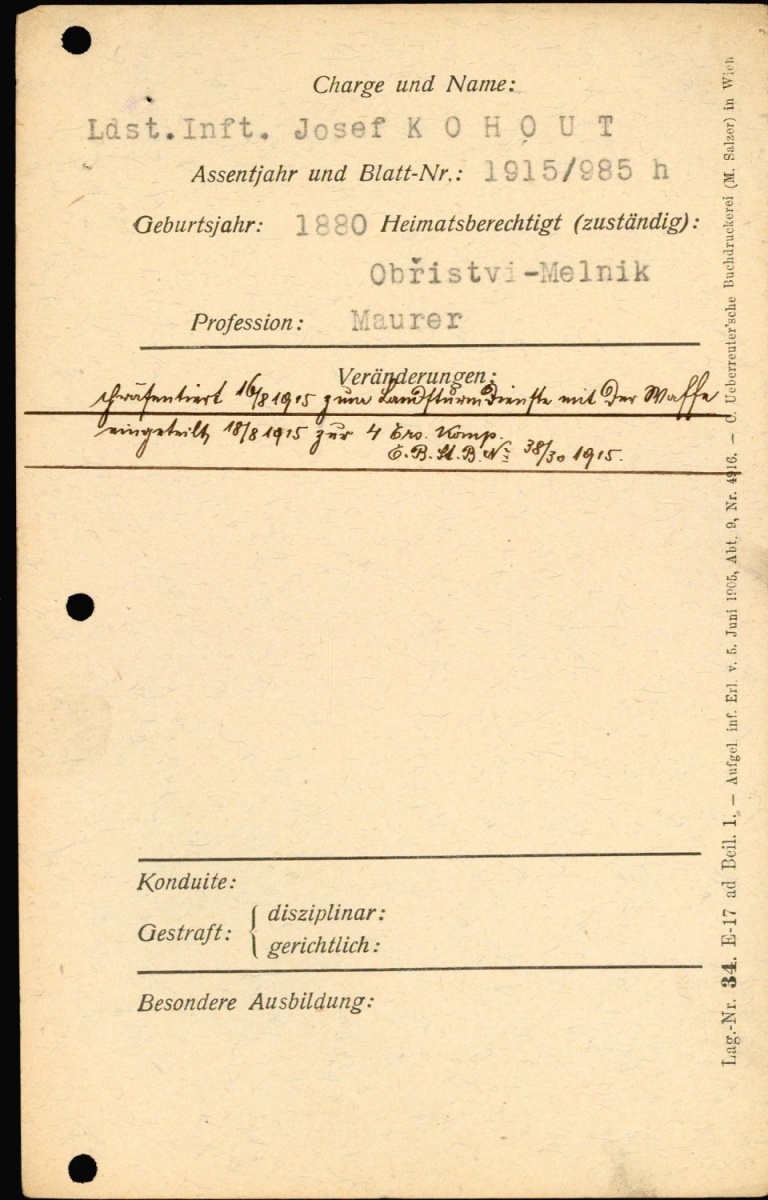 Charge und Name:
Ldst.Inft. Josef K O H O U T
Assentjahr und Blatt-Nr.: 1915/985 h
Geburtsjahr: 1880 Heimatsberechtigt (zuständig):
Obřistvi-Melnik
Profession: Maurer
Veränderungen:
Präsentiert 16/8 1915 zum Landsturmdienste mit der Waffe
eingeteilt 18/8 1915 zur 4 Ers. Komp.
E.B.St.B.No 38/30 1915.
Konduite:
Gestraft: { disziplinar:
gerichtlich:
Besondere Ausbildung:
Lag.-Nr. 34. E-17 ad Beil. 1. — Aufgel. inf. Erl. v. 5. Juni 1905, Abt. 9, Nr. 4916. — C. Ueberreuter'sche Buchdruckerei (M. Salzer) in Wien